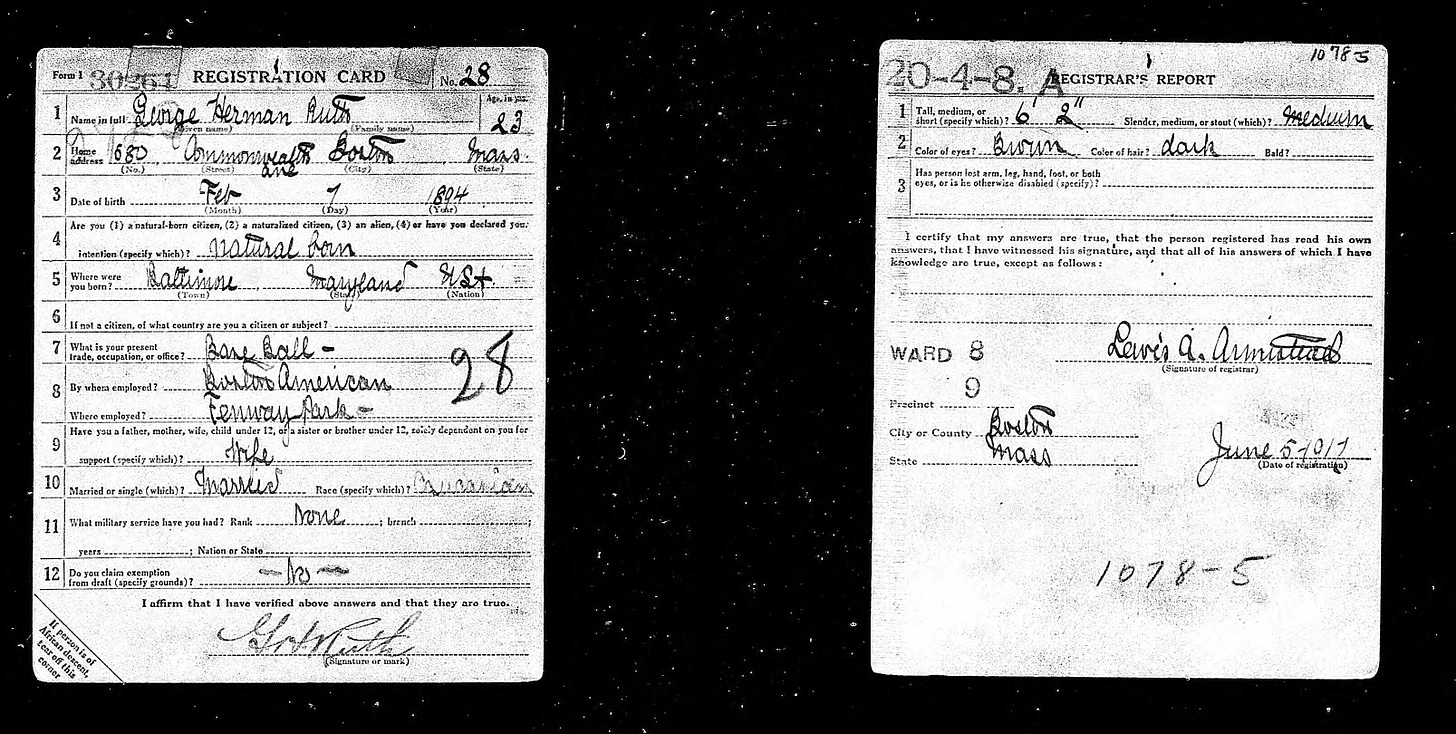 Form 1 30264 REGISTRATION CARD No. 28
1 Name in full George Herman Ruth Age, in yrs. 23
(Given name) (Family name)
2 Home address 680 Commonwealth Ave Boston Mass.
(No.) (Street) (City) (State)
3 Date of birth Feb 7 1894
(Month) (Day) (Year)
4 Are you (1) a natural-born citizen, (2) a naturalized citizen, (3) an alien, (4) or have you declared your
intention (specify which)? natural born
5 Where were you born? Baltimore Maryland USA
(Town) (State) (Nation)
6 If not a citizen, of what country are you a citizen or subject?
7 What is your present trade, occupation, or office? Base Ball -
8 By whom employed? Boston American
28
Where employed? Fenway Park -
9 Have you a father, mother, wife, child under 12, or a sister or brother under 12, solely dependent on you for
support (specify which)? Wife
10 Married or single (which)? Married Race (specify which)? Caucasian
11 What military service have you had? Rank None ; branch ;
years ; Nation or State
12 Do you claim exemption from draft (specify grounds)? - No -
I affirm that I have verified above answers and that they are true.
Geo H Ruth
(Signature or mark)
If person is of
African descent,
tear off this
corner
10785
20-4-8. A REGISTRAR'S REPORT
1 Tall, medium, or short (specify which)? 6' 2" Slender, medium, or stout (which)? medium
2 Color of eyes? Brown Color of hair? dark Bald?
3 Has person lost arm, leg, hand, foot, or both
eyes, or is he otherwise disabled (specify)?
I certify that my answers are true, that the person registered has read his own
answers, that I have witnessed his signature, and that all of his answers of which I have
knowledge are true, except as follows:
Lewis A. Armistead
(Signature of registrar)
WARD 8
9
Precinct
City or County Boston
State Mass
June 5 1917
(Date of registration)
1078-5